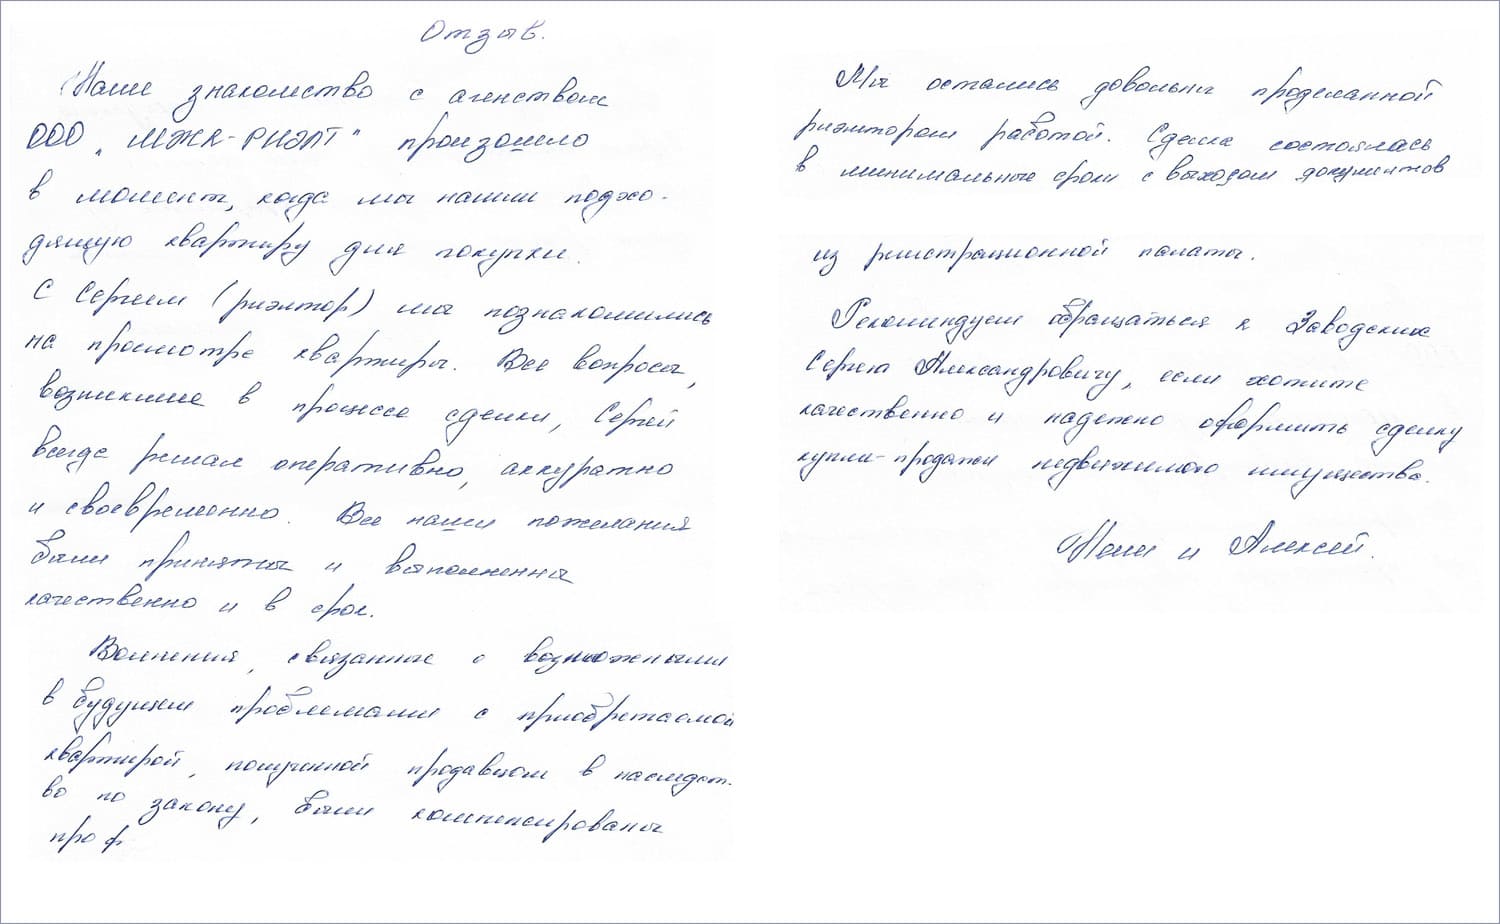 Отзыв.
Наше знакомство с агенством
ООО „МЖК-РИЭЛТ" произошло
в момент, когда мы нашли подхо-
дящую квартиру для покупки.
С Сергеем (риэлтор) мы познакомились
на просмотре квартиры. Все вопросы,
возникшие в процессе сделки, Сергей
всегда решал оперативно, аккуратно
и своевременно. Все наши пожелания
были приняты и выполненны
качественно и в срок.
Волнения, связанные с возможными
в будущем проблемами с приобретаемой
квартирой, полученной продавцом в наследст-
во по закону, были компенсированы
проф
Мы остались довольны проделанной
риэлтором работой. Сделка состоялась
в минимальные сроки с выходом документов
из регистрационной палаты.
Рекомендуем обращаться к Заводских
Сергею Александровичу, если хотите
качественно и надежно оформить сделку
купли-продажи недвижимого имущества.
и Алексей.